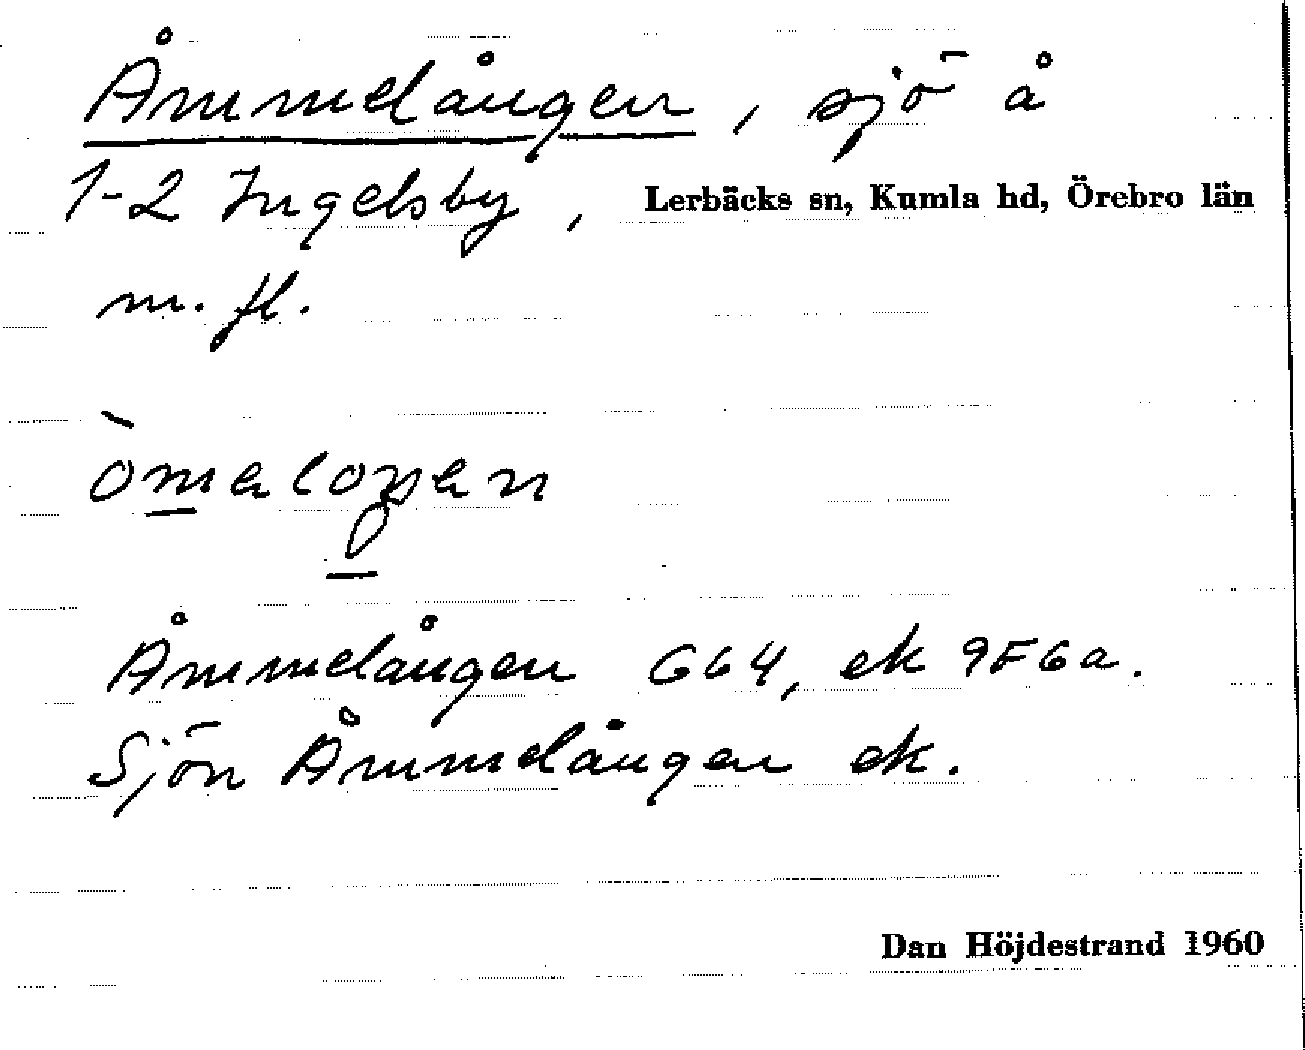 Åmmelången, sjö å
1-2 Ingelsby, Lerbäcks sn, Kumla hd, Örebro län
m. fl.
Åmmelången G64, ek 9F6a.
Sjön Åmmelången ek.
Dan Höjdestrand 1960